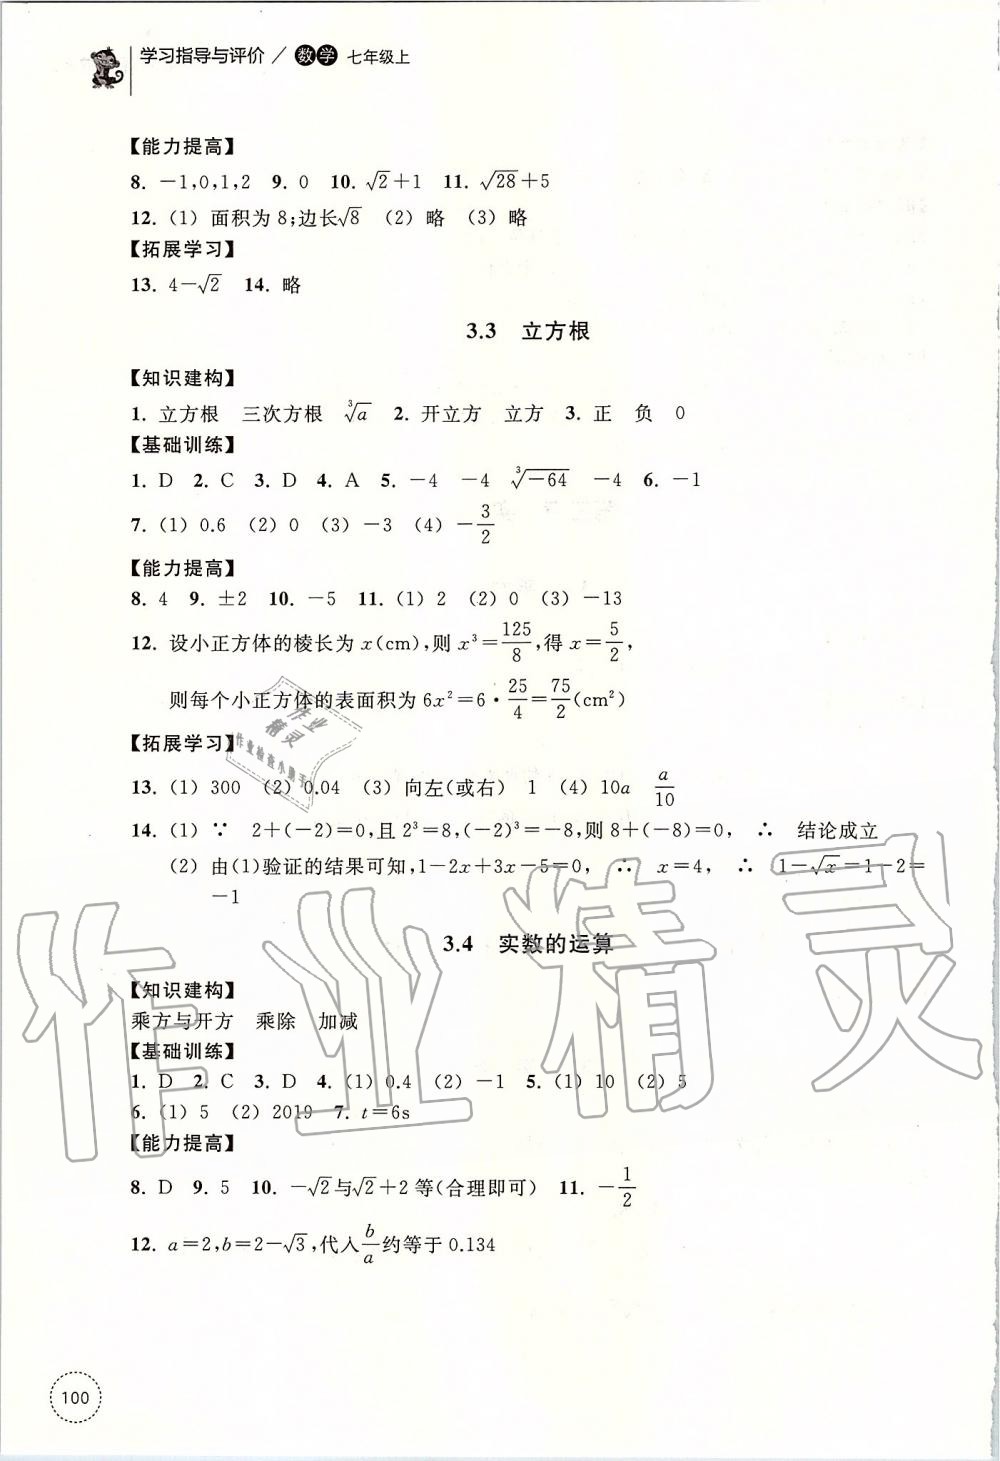 学习指导与评价 / 数学 七年级上
【能力提高】
8. －1,0,1,2 9. 0 10. √2＋1 11. √28＋5
12. (1) 面积为 8;边长√8 (2) 略 (3) 略
【拓展学习】
13. 4－√2 14. 略
3.3 立方根
【知识建构】
1. 立方根 三次方根 ∛a 2. 开立方 立方 3. 正 负 0
【基础训练】
1. D 2. C 3. D 4. A 5. －4 －4 ∛－64 －4 6. －1
7. (1) 0.6 (2) 0 (3) －3 (4) －3/2
【能力提高】
8. 4 9. ±2 10. －5 11. (1) 2 (2) 0 (3) －13
12. 设小正方体的棱长为 x(cm),则 x³＝125/8,得 x＝5/2,
则每个小正方体的表面积为 6x²＝6·25/4＝75/2(cm²)
【拓展学习】
13. (1) 300 (2) 0.04 (3) 向左(或右) 1 (4) 10a a/10
14. (1) ∵ 2＋(－2)＝0,且 2³＝8,(－2)³＝－8,则 8＋(－8)＝0, ∴ 结论成立
(2) 由(1)验证的结果可知,1－2x＋3x－5＝0, ∴ x＝4, ∴ 1－√x＝1－2＝
－1
3.4 实数的运算
【知识建构】
乘方与开方 乘除 加减
【基础训练】
1. D 2. C 3. D 4. (1) 0.4 (2) －1 5. (1) 10 (2) 5
6. (1) 5 (2) 2019 7. t＝6s
【能力提高】
8. D 9. 5 10. －√2与√2＋2 等(合理即可) 11. －1/2
12. a＝2,b＝2－√3,代入b/a约等于 0.134
100
作业精灵
作业
精灵
作业检查小助手